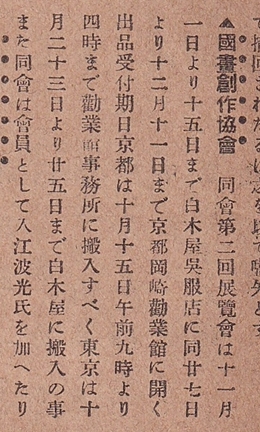 ▲國畫創作協會 同會第二回展覽會は十一月
一日より十五日まで白木屋吳服店に同廿七日
より十二月十一日まで京都岡崎勸業館に開く
出品受付期日京都は十月十五日午前九時より
四時まで勸業館事務所に搬入すべく東京は十
月二十三日より廿五日まで白木屋に搬入の事
また同會は會員として入江波光氏を加へたり